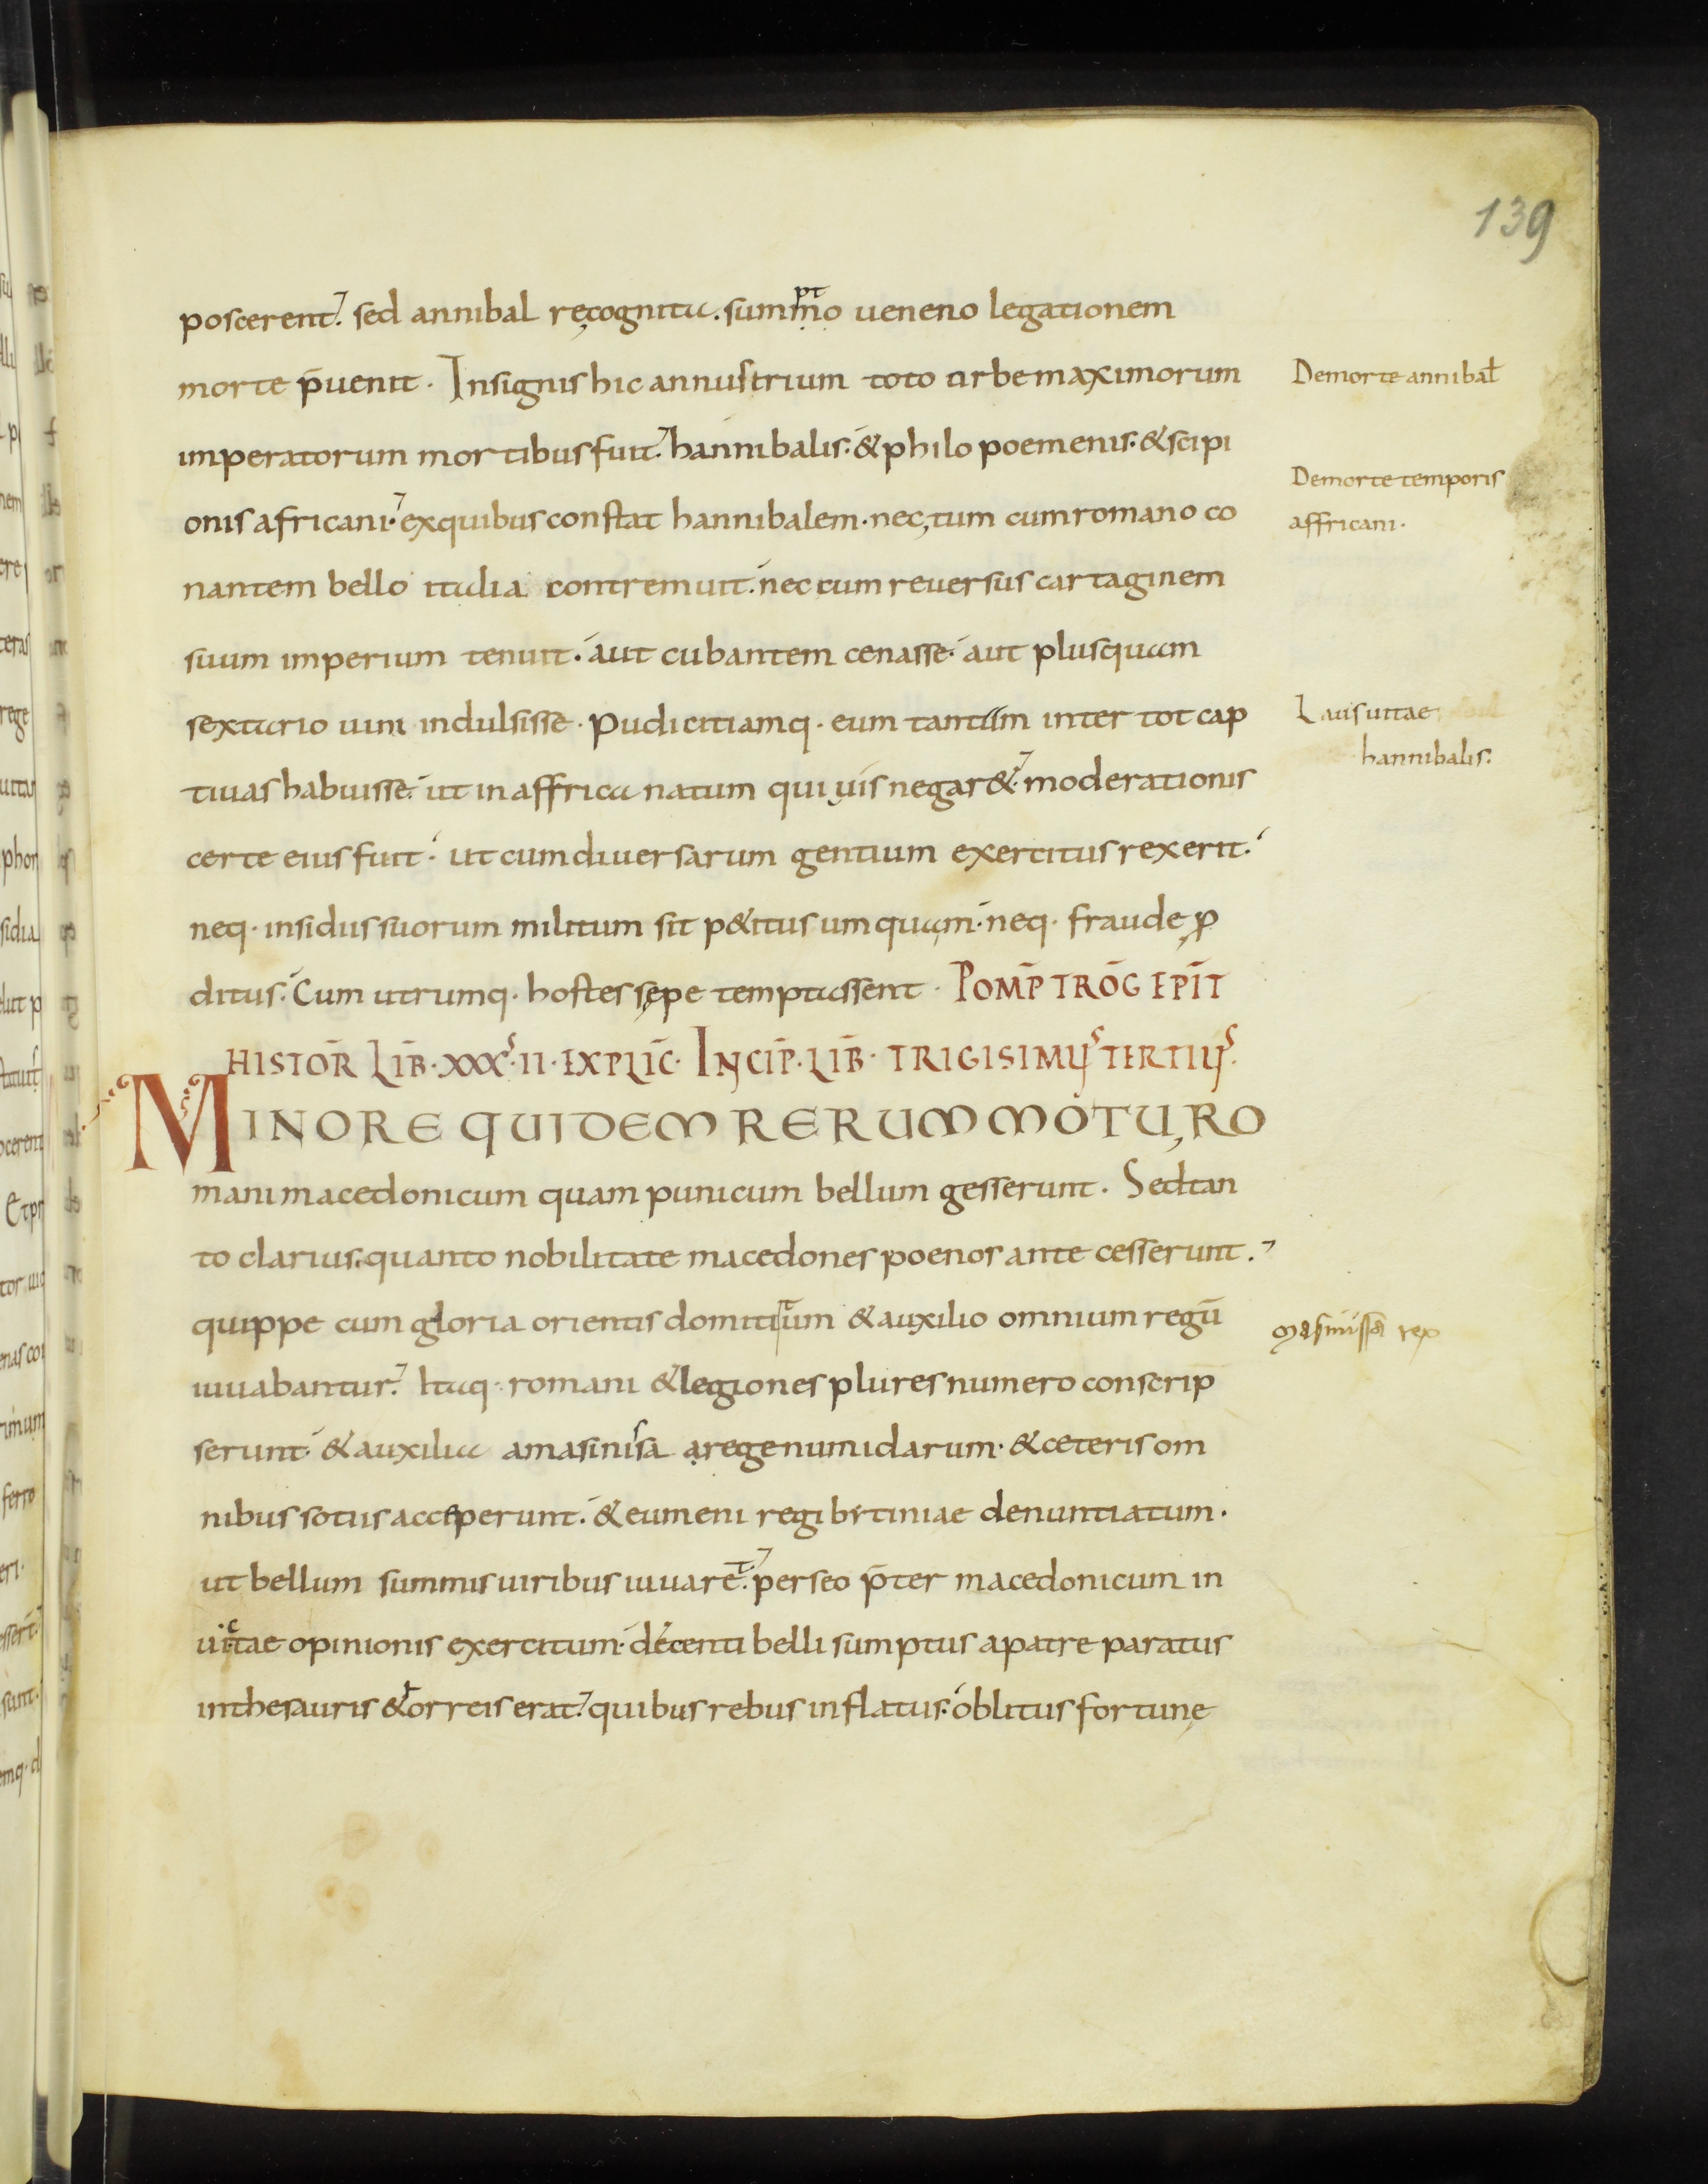 139
poscerent. sed annibal recognita. summo ueneno legationem
morte p̄uenit. Insignis hic annus trium toto orbe maximorum
Demorte annibal
imperatorum mortibus fuit. hannibalis. & philo poemenis. & scipi
onis africani. exquibus constat hannibalem. nec, tum cum romano co
Demorte temporis
affricani.
nantem bello italia contremuit. nec cum reuersus cartaginem
suum imperium tenuit. aut cubantem cenasse. aut plusquam
sextario uini indulsisse. Pudicitiamq. eum tantam inter tot cap
Laus uitae
hannibalis.
tiuas habuisse. ut in affrica natum qui uis negar&. moderationis
certe eius fuit. ut cum diuersarum gentium exercitus rexerit.
neq. insidiis suorum militum sit p&itus umquam. neq. fraude ꝓ
ditus. Cum utrumq. hostes sępe temptassent. POMP̄ TROḠ EPIT̄
HISTOR̄ LIB̄. XXXS. II. EXPLIC̄. INCIP̄. LIB̄. TRIGISIMUS TERTIUS.
MINORE QUIDEM RERUM MOTU, RO
mani macedonicum quam punicum bellum gesserunt. Sed tan
to clarius. quanto nobilitate macedones poenos ante cesserunt.
quippe cum gloria orientis domiti tum & auxilio omnium regū
masinissa rex
iuuabantur. Itaq. romani & legiones plures numero conscrip
serunt. & auxilia amasinisa a rege numidarum. & ceteris om
nibus sotiis acceperunt. & eumeni regi bitiniae denuntiatum.
ut bellum summis uiribus iuuaret. perseo p̄ter macedonicum in
uictae opinionis exercitum. decenti belli sumptus apatre paratus
inthesauris & orreis erat. quibus rebus inflatus. oblitus fortunę